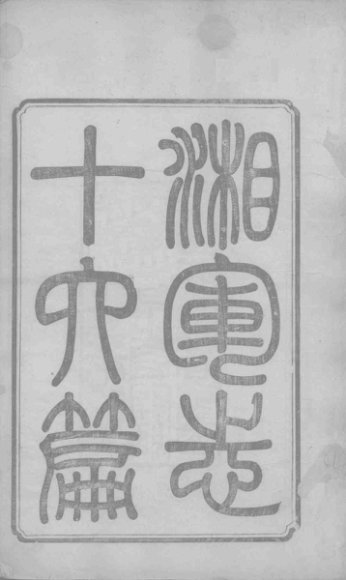 湘軍志
十六篇